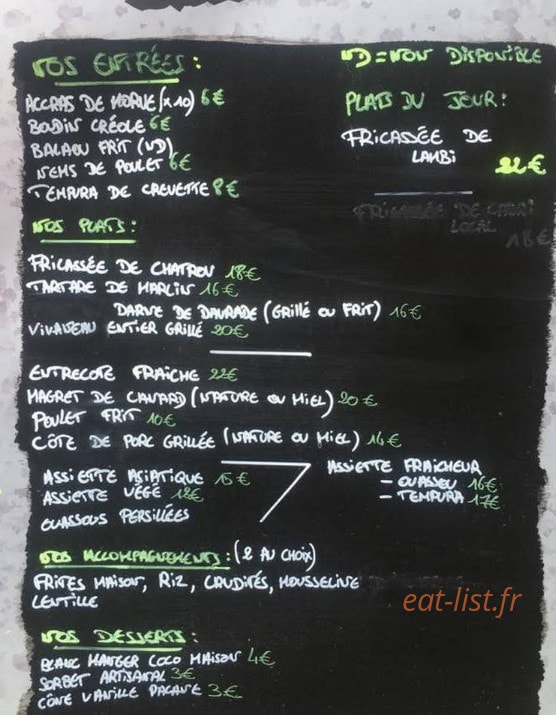 NOS ENTRÉES :
ACCRAS DE MORUE (x10) 6€
BOUDIN CRÉOLE 6€
BALAOU FRIT (ND)
NEMS DE POULET 6€
TEMPURA DE CREVETTE 8€
ND = NON DISPONIBLE
PLATS DU JOUR :
FRICASSÉE DE
LAMBI
22€
FRICASSÉE DE CABRI
LOCAL
18€
NOS PLATS :
FRICASSÉE DE CHATROU 18€
TARTARE DE MARLIN 16€
DARNE DE DAURADE (GRILLÉ OU FRIT) 16€
VIVANEAU ENTIER GRILLÉ 20€
ENTRECOTE FRAICHE 22€
MAGRET DE CANARD (NATURE OU MIEL) 20€
POULET FRIT 10€
CÔTE DE PORC GRILLÉE (NATURE OU MIEL) 14€
ASSIETTE ASIATIQUE 15€
ASSIETTE VÉGÉ 12€
OUASSOUS PERSILLÉES
ASSIETTE FRAICHEUR
- OUASSOU 16€
- TEMPURA 17€
NOS ACCOMPAGNEMENTS : (2 AU CHOIX)
FRITES MAISON, RIZ, CRUDITÉS, MOUSSELINE
LENTILLE
eat-list.fr
NOS DESSERTS :
BLANC MANGER COCO MAISON 4€
SORBET ARTISANAL 3€
CÔNE VANILLE PACANE 3€